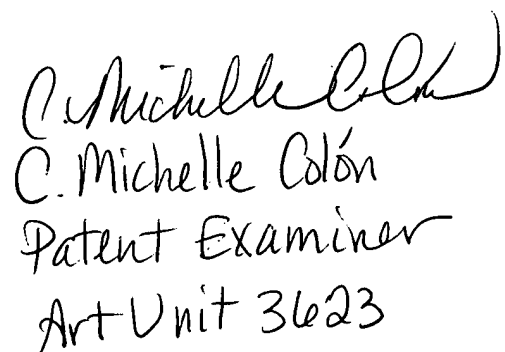 C. Michelle Colón
C. Michelle Colón
Patent Examiner
Art Unit 3623